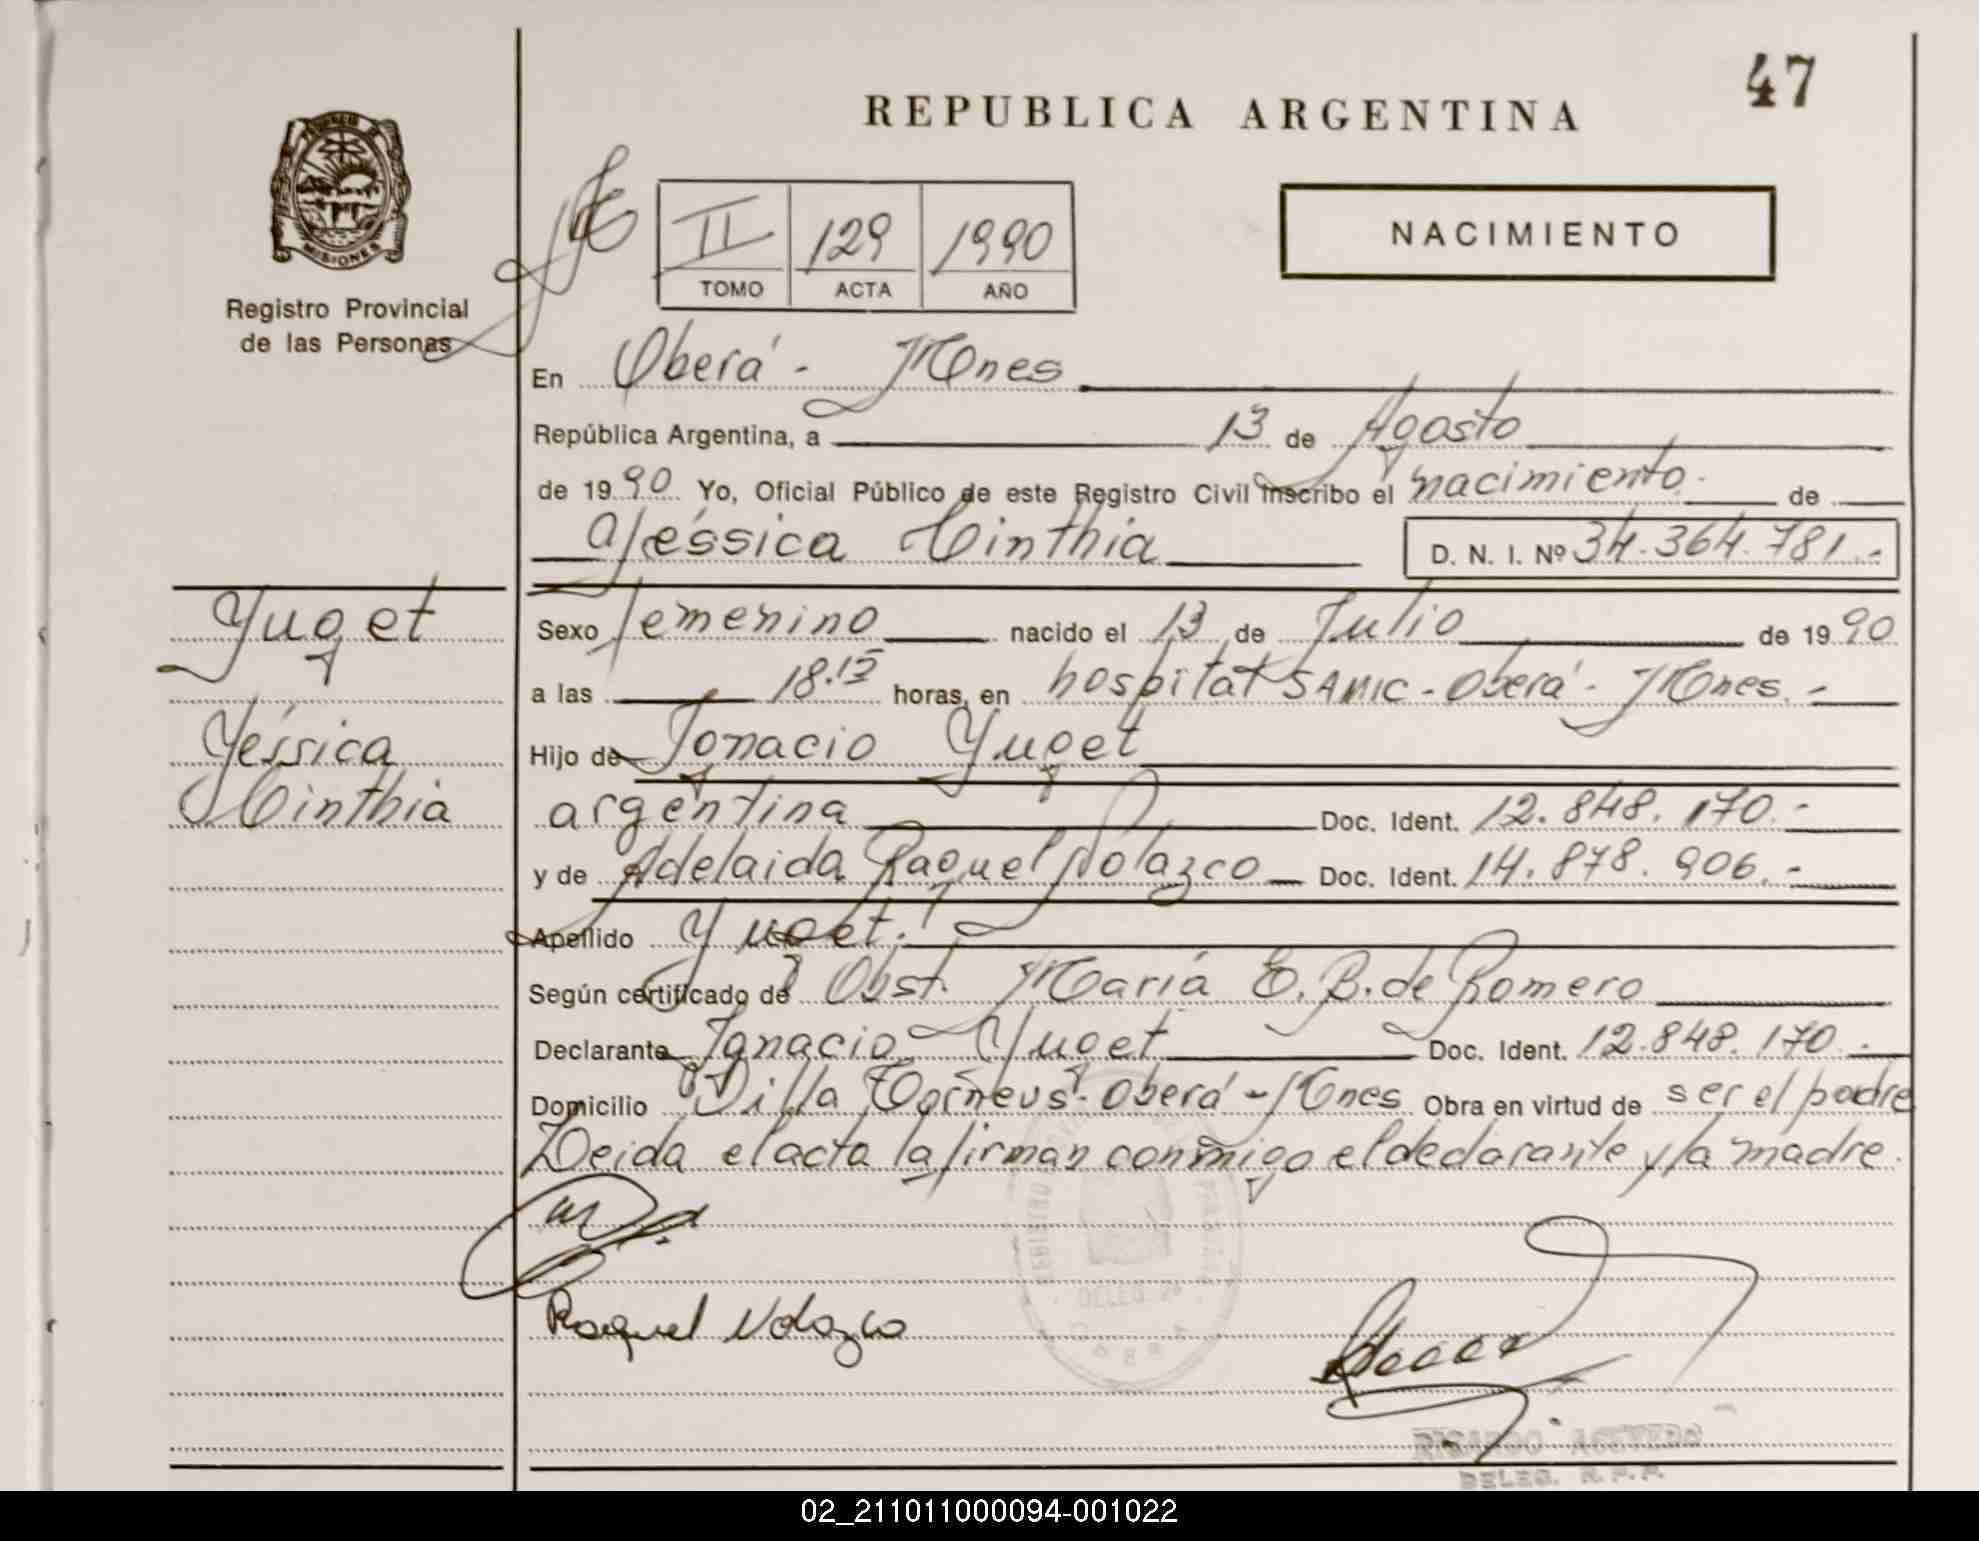 47
REPUBLICA ARGENTINA
MISIONES
Registro Provincial
de las Personas
II 129 1990
TOMO ACTA AÑO
NACIMIENTO
En Oberá - Mnes
República Argentina, a 13 de Agosto
de 1990 Yo, Oficial Público de este Registro Civil inscribo el nacimiento de
Yéssica Cinthia D. N. I. Nº 34.364.781.-
Yuget
Yéssica
Cinthia
Sexo femenino nacido el 13 de Julio de 1990
a las 18.15 horas, en hospital SAMIC - Oberá - Mnes.-
Hijo de Ignacio Yuget
argentina Doc. Ident. 12.848.170.-
y de Adelaida Raquel Nolazco Doc. Ident. 14.878.906.-
Apellido Yuget.
Según certificado de Obst. María E. B. de Romero
Declarante Ignacio Yuget Doc. Ident. 12.848.170.-
Domicilio Villa Oberá - Mnes Obra en virtud de ser el padre
Leida el acta la firman conmigo el declarante y la madre.
Raquel Nolazco
DELEG. R.P.P.
02_211011000094-001022